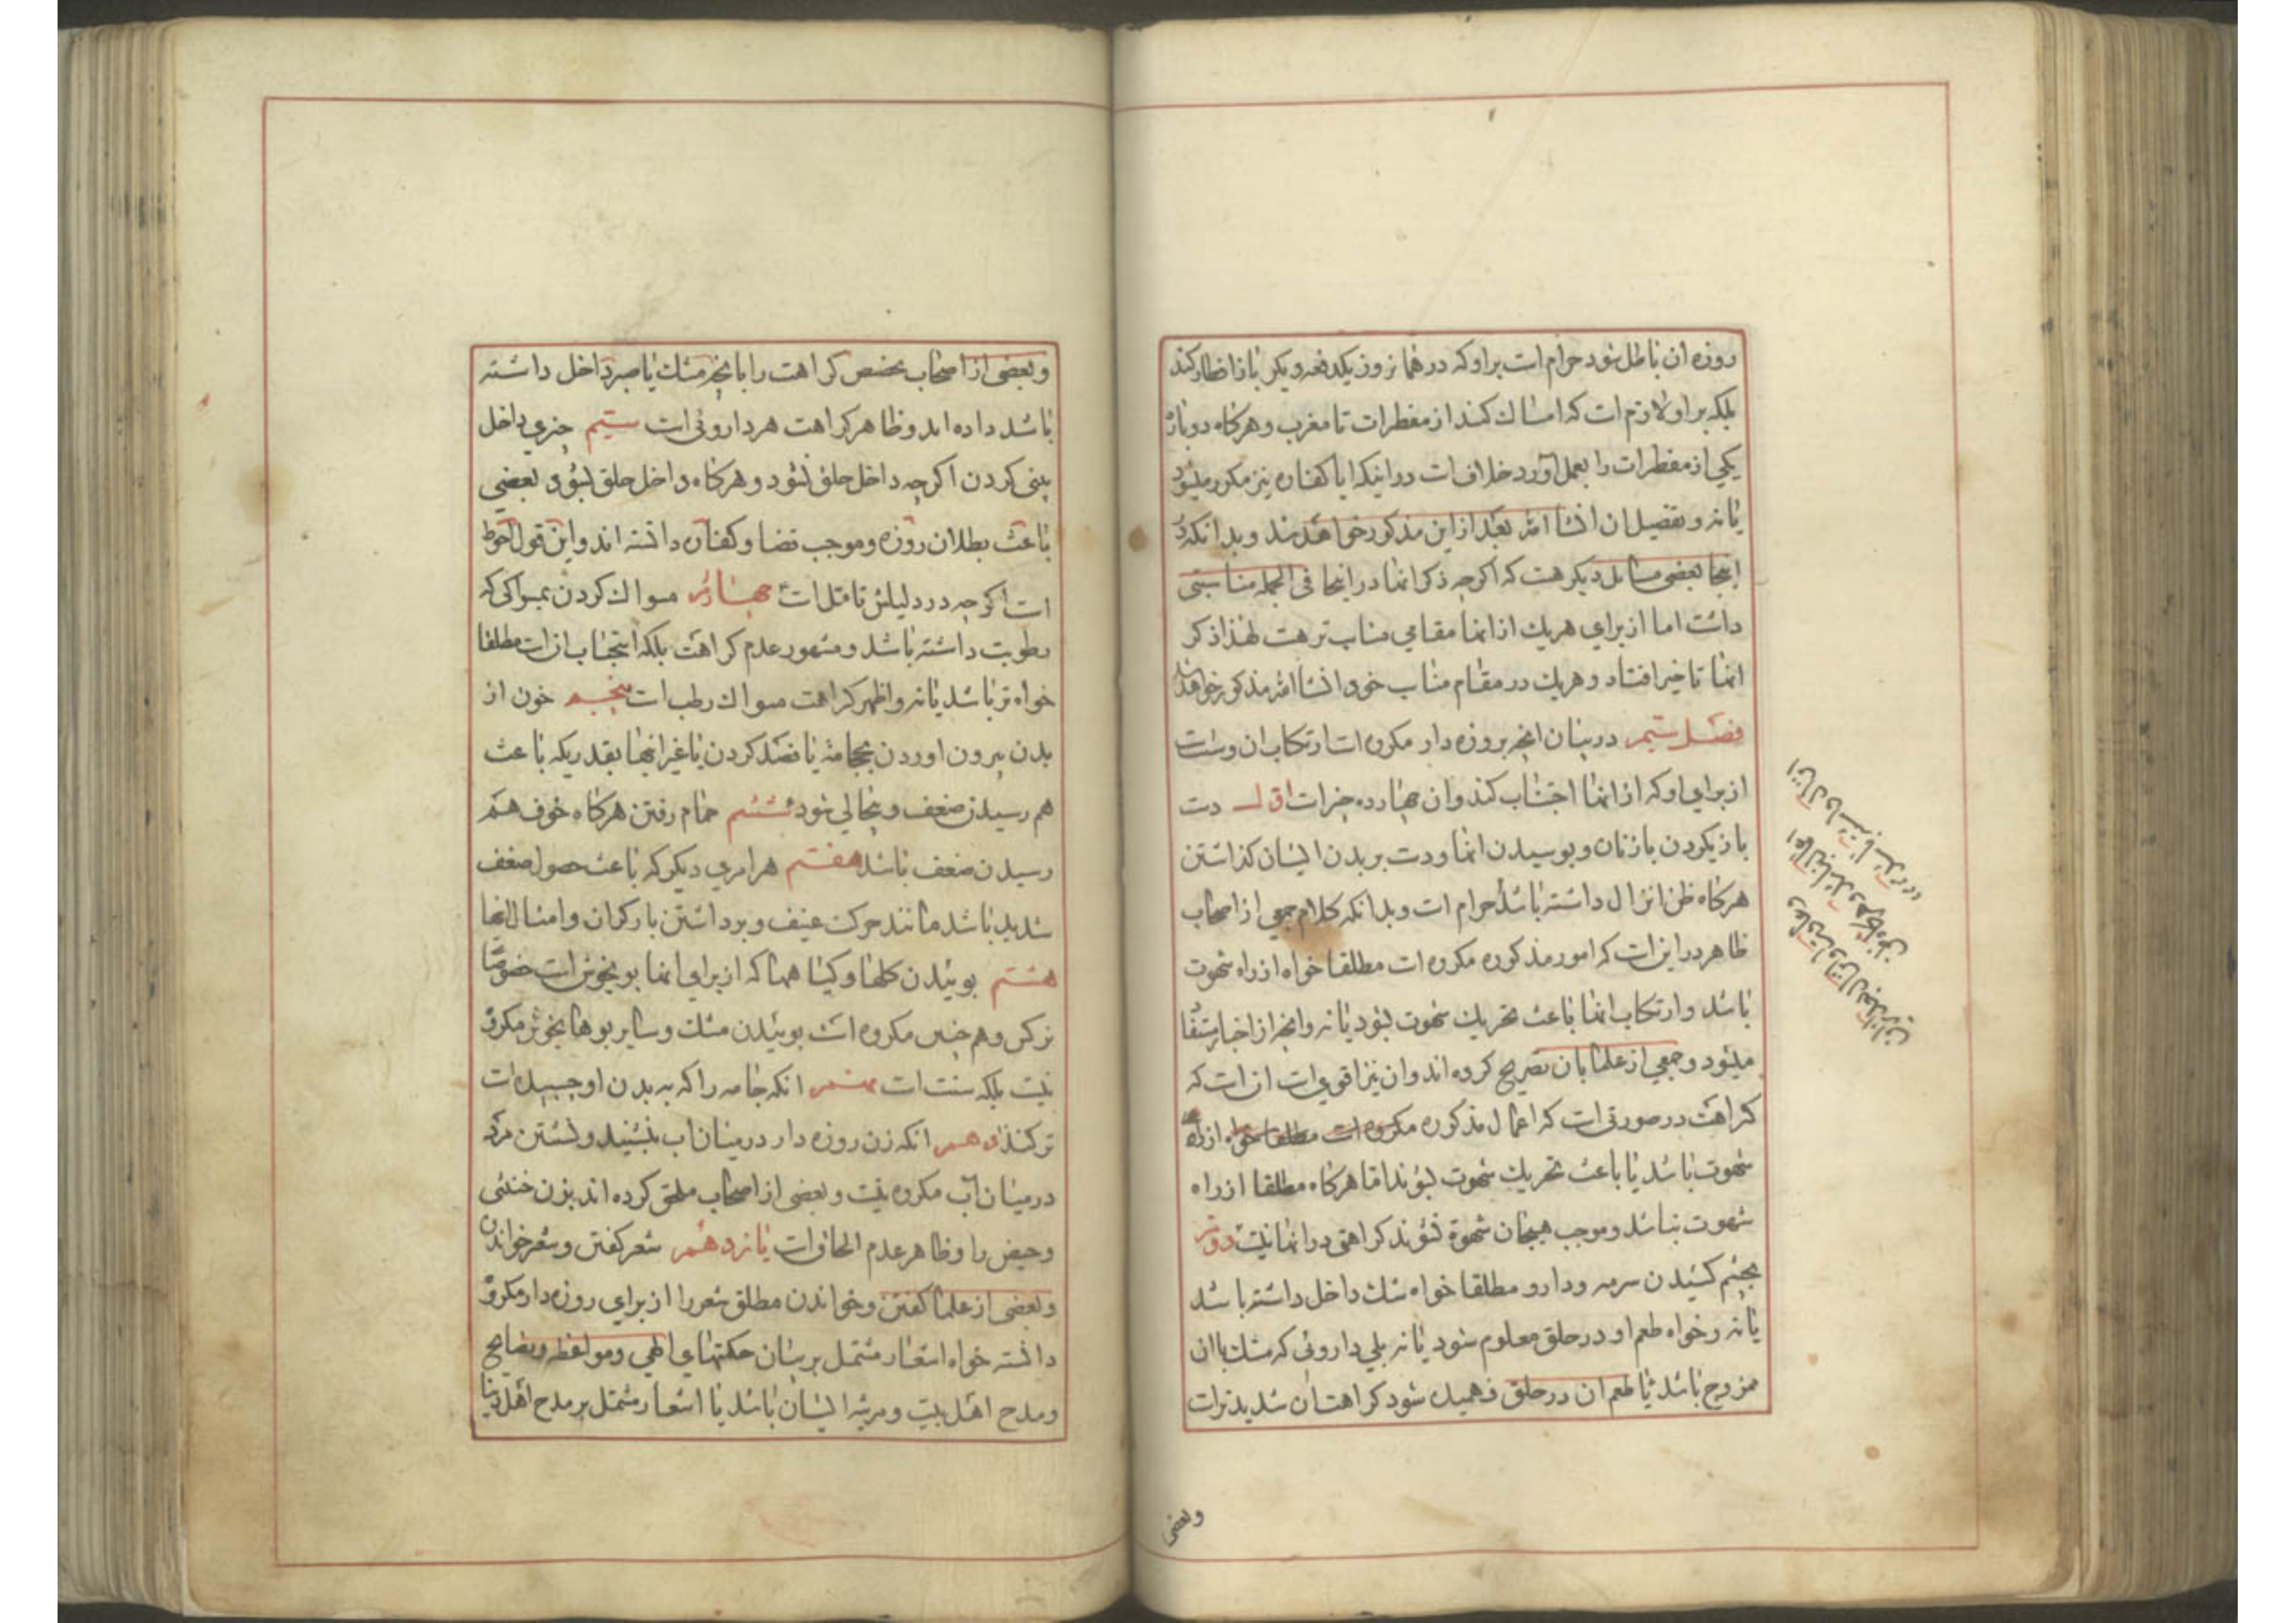 روزه ان باطل شود حرام است بر او که در همان روز یکدفعه دیگر باز افطار کند
بلکه بر او لازم است که امساك کند از مفطرات تا مغرب و هرکاه دوباره
یکی از مفطرات را بعمل آورد خلاف است در اینکه ایا کفاره نیز مکرر میشود
یا نه و تفصیل ان انشا الله بعد از این مذکور خواهد شد و بدانکه در
اینجا بعضی مسائل دیگر هست که اگرچه ذکر انها در اینجا فی الجمله مناسبتی
داشت اما از برای هریك از انها مقامی مناسب تر هست لهذا ذکر
انها تاخیر افتاد و هریك در مقام مناسب خود انشا الله مذکور خواهد شد
فصل سیم در بیان انچه بر روزه دار مکروه است ارتکاب ان و سنت است
از برای او که از انها اجتناب کند و ان چهارده چیز است اول دست
بازی کردن با زنان و بوسیدن انها و دست بر بدن ایشان گذاشتن
هرکاه ظن انزال داشته باشد حرام است و بدانکه کلام جمعی از اصحاب
ظاهر در این است که امور مذکوره مکروه است مطلقا خواه از راه شهوت
باشد و ارتکاب انها باعث تحریك شهوت بشود یا نه و انچه از اخبار مستفاد
میشود و جمعی از علما بان تصریح کرده اند و ان نیز اقوی است ان است که
کراهت در صورتی است که اعمال مذکوره مکروه است مطلقا خواه از راه
شهوت باشد یا باعث تحریك شهوت بشوند اما هرکاه مطلقا از راه
شهوت نباشد و موجب هیجان شهوة نشوند کراهتی در انها نیست دویم
بچشم کشیدن سرمه و دارو مطلقا خواه مشك داخل داشته باشد
یا نه و خواه طعم او در حلق معلوم شود یا نه بلی داروئی که مشك با ان
ممزوج باشد یا طعم ان در حلق فهمیده شود کراهت ان شدیدتر است
وبعضی
وبعضی از اصحاب تخصیص کراهت را بانچه مشك یا صبر داخل داشته
باشد داده اند و ظاهر کراهت هر داروئی است سیم چیزی داخل
بینی کردن اگرچه داخل حلق نشود و هرکاه داخل حلق بشود بعضی
باعث بطلان روزه و موجب قضا و کفاره دانسته اند و این قول احوط
است اگرچه در دلیلش تامل است چهارم مسواك کردن بمسواکی که
رطوبت داشته باشد و مشهور عدم کراهت بلکه استحباب ان است مطلقا
خواه تر باشد یا نه و اظهر کراهت مسواك رطب است پنجم خون از
بدن بیرون اوردن بحجامة یا فصد کردن یا غیر اینها بقدری که باعث
هم رسیدن ضعف و بیحالی شود ششم حمام رفتن هرکاه خوف هم
رسیدن ضعف باشد هفتم هر امری دیگر که باعث حصول ضعف
شدید باشد مانند حرکت عنیف و برداشتن بار گران و امثال انها
هشتم بوئیدن کلها و کیاهها که از برای انها بوی خوش است خصوصا
نرکس و هم چنین مکروه است بوئیدن مشك و سایر بوهای خوش مکروه
نیست بلکه سنت است نهم انکه جامه را که به بدن او چسبیده است
تر کند دهم انکه زن روزه دار در میان اب بنشیند و نشستن مرد
در میان آب مکروه نیست و بعضی از اصحاب ملحق کرده اند بزن خنثی
وظاهر عدم الحاق است یازدهم شعر کفتن و شعر خواندن
وبعضی از علما کفتن و خواندن مطلق شعر را از برای روزه دار مکروه
دانسته خواه اشعار مشتمل بر بیان حکمتهای الهی و مواعظ و نصایح
ومدح اهل بیت و مرثیه ایشان باشد یا اشعار مشتمل بر مدح اهل دنیا